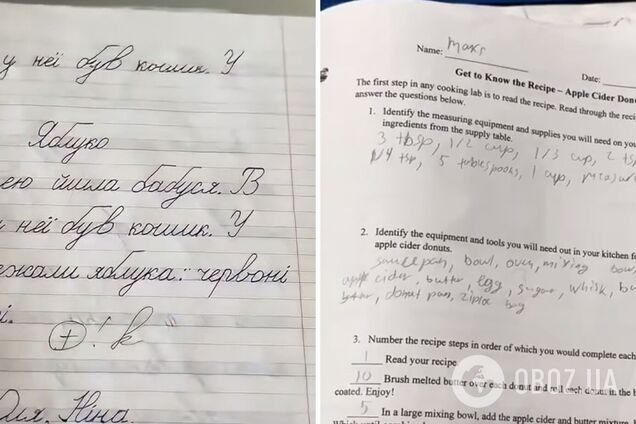 у неї був кошик. У
Яблуко
ею йшла бабуся. В
неї був кошик. У
жали яблука: червоні
Дія. Ніна.
Name: Maks
Date:
Get to Know the Recipe – Apple Cider Don
The first step in any cooking lab is to read the recipe. Read through the reci
answer the questions below.
1. Identify the measuring equipment and supplies you will need on you
ingredients from the supply table.
3 tbsp, 1/2 cup, 1/3 cup, 2 ts
1/4 tsp, 5 tablespoons, 1 cup, measur
2. Identify the equipment and tools you will need out in your kitchen f
apple cider donuts.
saucepan, bowl, oven, mixing bow
apple cider, butter, egg, sugar, whisk, bu
donut pan, ziploc bag
3. Number the recipe steps in order of which you would complete each
1 Read your recipe.
10 Brush melted butter over each donut and roll each donut in the b
coated. Enjoy!
5 In a large mixing bowl, add the apple cider and butter mixture.
OBOZ.UA